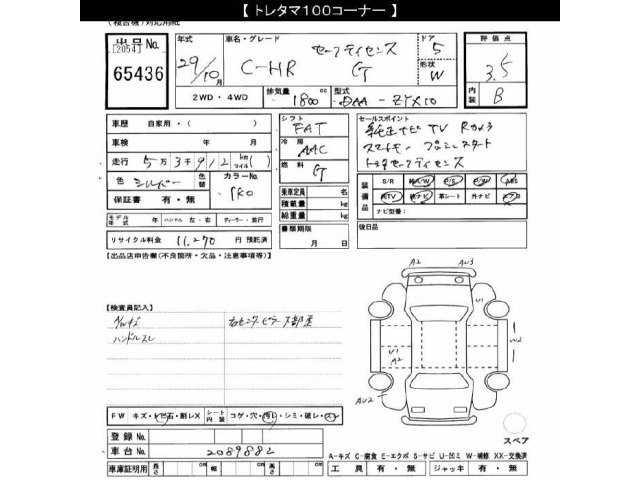 【 トレタマ100コーナー 】
(複合機)対応用紙
出品No. [2054] 65436
年式 29/10月
車名・グレード C-HR セーフティセンス GT
ドア 5
形状 W
評価点 3.5
内装 B
2WD・4WD
排気量 1800 cc
型式 DAA - ZYX10
車歴 自家用・( )
車検 年 月
走行 5万3千912 km マイル( )
色 シルバー 色替 カラーNo. 1K0
保証書 有・無
モデル年式 年 ハンドル 左・右 ディーラー・並行
リサイクル料金 11,270 円 預託済
シフト FAT
冷房 AAC
燃料 G
乗車定員 名
積載量 kg
総重量 kg
書類期限 月 日
セールスポイント
純正ナビ TV Rカメラ
スマートキー プッシュスタート
トヨタセーフティセンス
装備品 S/R 純A/W P/S P/W ABS
純TV 純ナビ 革シート 外ナビ エアB
ナビ型番:
後日品
【出品店申告欄(不良箇所・欠品・注意事項等)】
【検査員記入】
ハンドルスレ
右センターピラー下部
A2 AU3
U1
U1
A2
AU2
スペア
FW キズ・トビ石・割レX シート内装 コゲ・穴・汚レ・シミ・破レ・スレ
登録No.
車台No. 2089882
A-キズ C-腐食 E-エクボ S-サビ U-凹ミ W-補修 XX-交換済
車庫証明用 長さ cm 幅 cm 高さ cm
工具 有・無 ジャッキ 有・無